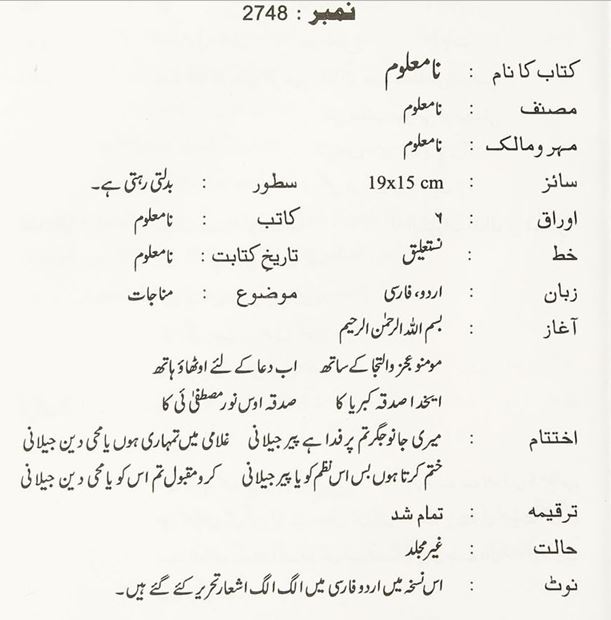 نمبر : 2748
کتاب کا نام : نامعلوم
مصنف : نامعلوم
مہر و مالک : نامعلوم
سائز : 19x15 cm سطور : بدلتی رہتی ہے۔
اوراق : ۶ کاتب : نامعلوم
خط : نستعلیق تاریخِ کتابت : نامعلوم
زبان : اردو، فارسی موضوع : مناجات
آغاز : بسم اللہ الرحمٰن الرحیم
مومنو عجز والتجا کے ساتھ اب دعا کے لئے اوٹھاؤ ہاتھ
ایخدا صدقہ کبریا کا صدقہ اوس نور مصطفیٰ ئی کا
اختتام : میری جانو جگر تم پر فدا ہے پیر جیلانی غلامی میں تمہاری ہوں یا محی دین جیلانی
ختم کرتا ہوں بس اس نظم کو یا پیر جیلانی کرو مقبول تم اس کو یا محی دین جیلانی
ترقیمہ : تمام شد
حالت : غیر مجلد
نوٹ : اس نسخہ میں اردو فارسی میں الگ الگ اشعار تحریر کئے گئے ہیں۔